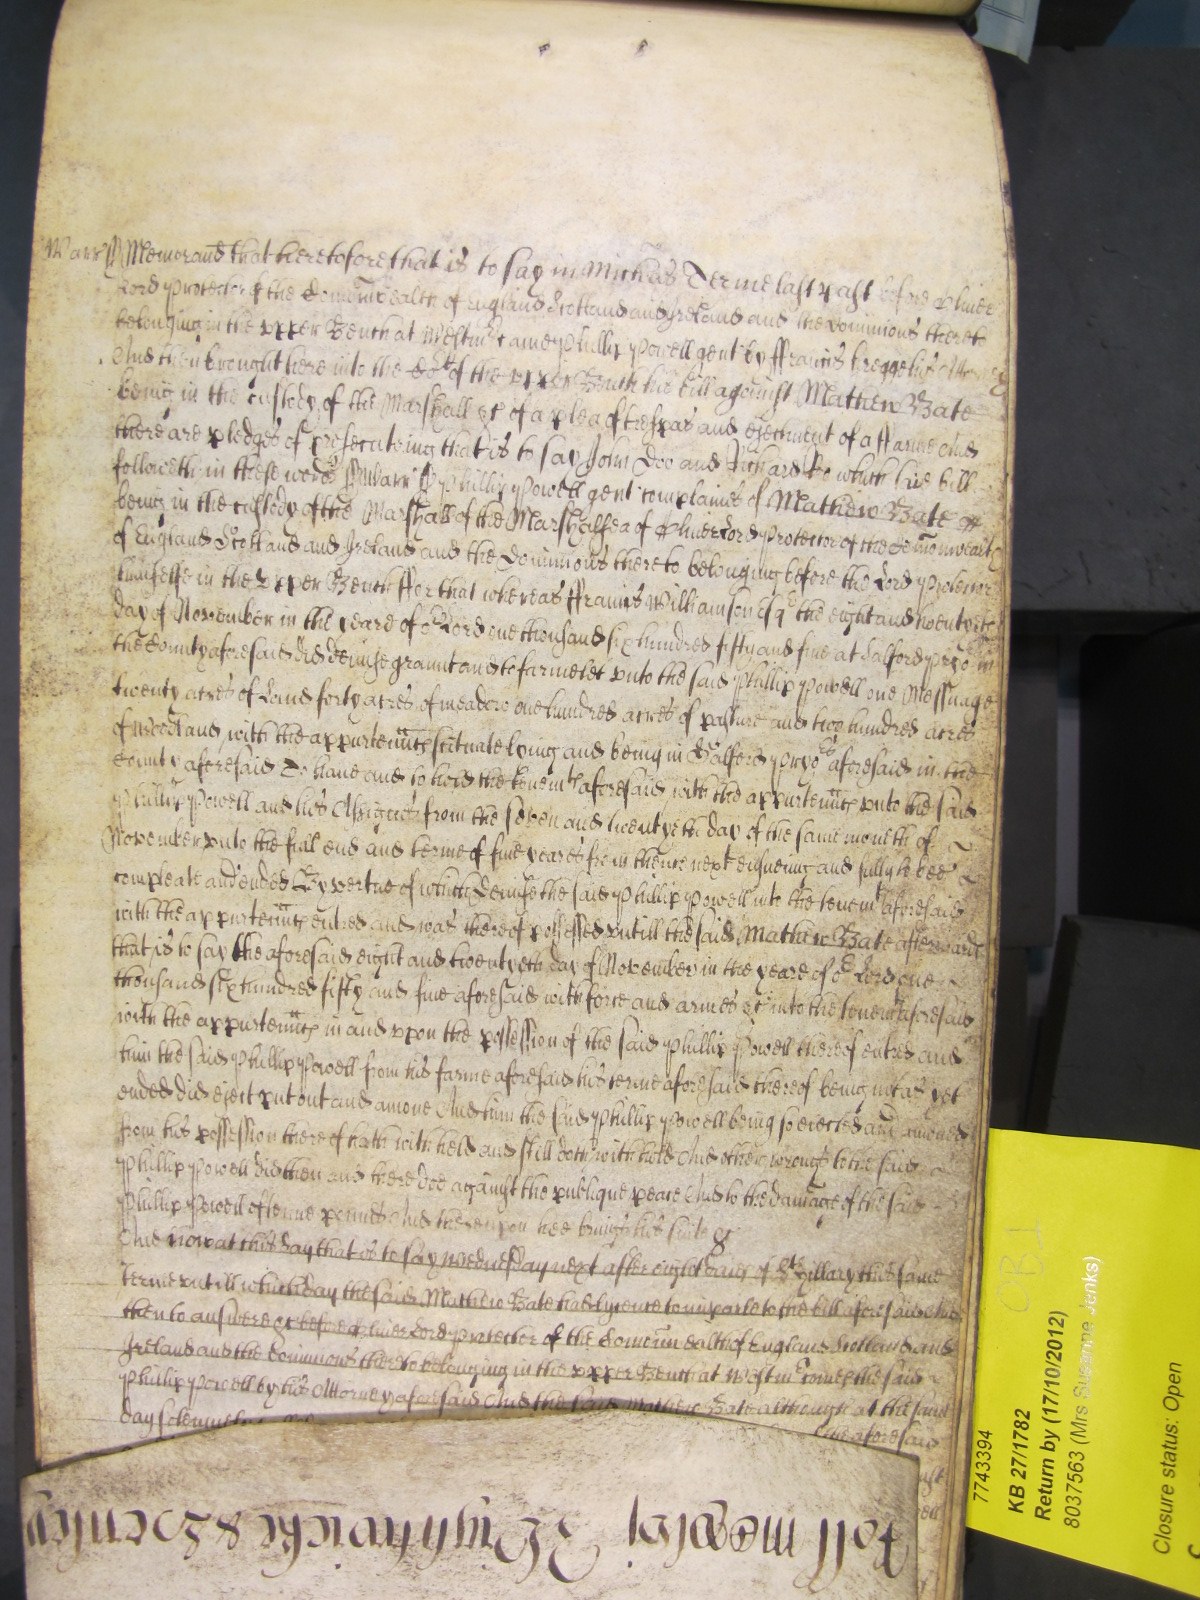 Warr ss Memorand that heretofore that is to say in Michas Terme last past before Oliver
Lord Protector of the Comonwealth of England Scotland and Ireland and the Dominions thereto
belonging in the upper Bench at Westmr came Phillip Powell gent by ffrancis
And then brought here into the Cort of the upper Bench his bill against Mathew Bate
being in the custody of the Marshall &c of a plea of trespas and ejectment of a ffarme And
there are pledges of prosecuteing that is to say John Doo and Richard Ro which said bill
followeth in these words ss Warr ss Phillip Powell gent complaines of Mathew Bate
being in the custody of the Marshall of the Marshalsea of Oliver Lord Protector of the Comonwealth
of England Scotland and Ireland and the Dominions thereto belonging before the Lord Protector
himselfe in the Upper Bench ffor that whereas ffrancis Williamson Esqr the eight and twentyeth
day of November in the yeare of or Lord one thousand six hundred fifty and five at Salford Pryo in
the County aforesaid did demise graunt and to farme lett unto the said Phillip Powell one Messuage
twenty acres of Land forty acres of meadow one hundred acres of pasture and two hundred acres
of Woodland with the appurtenncs scituate lying and being in Salford Pryo aforesaid in the
County aforesaid To have and to hold the tenemts aforesaid with the appurtenncs unto the said
Phillip Powell and his Assignes from the seven and twentyeth day of the same moneth of
November unto the full end and terme of five yeares from thence next ensueing and fully to bee
compleate and ended By vertue of which demise the said Phillip Powell into the tenemts aforesaid
with the appurtenncs entred and was thereof possessed untill the said Mathew Bate afterwards
that is to say the aforesaid eight and twentyeth day of November in the yeare of or Lord one
thousand six hundred fifty and five aforesaid with force and armes &c into the tenemts aforesaid
with the appurtenncs in and upon the possession of the said Phillip Powell thereof entred and
him the said Phillip Powell from his farme aforesaid his terme aforesaid thereof being not as yet
ended did eject put out and amove And him the said Phillip Powell being so ejected and amoved
from his possession thereof hath with held and still doth with hold And other wrongs to the said
Phillip Powell did then and there doe against the publique peace And to the damage of the said
Phillip Powell of tenne pounds And thereupon hee brings his suite &c
And now at this day that is to say Wednesday next after eight daies of St Hillary this same
Terme untill which day the said Mathew Bate had lycence to imparle to the bill aforesaid And
then to answere &c before Oliver Lord Protector of the Comonwealth of England Scotland and
Ireland and the Dominions thereto belonging in the upper Bench at Westmr comes the said
Phillip Powell by his Attorney aforesaid And the said Mathew Bate although at the same
day solemnely
aforesaid
7743394
KB 27/1782
Return by (17/10/2012)
8037563 (Mrs Susanne Jenks)
Closure status: Open